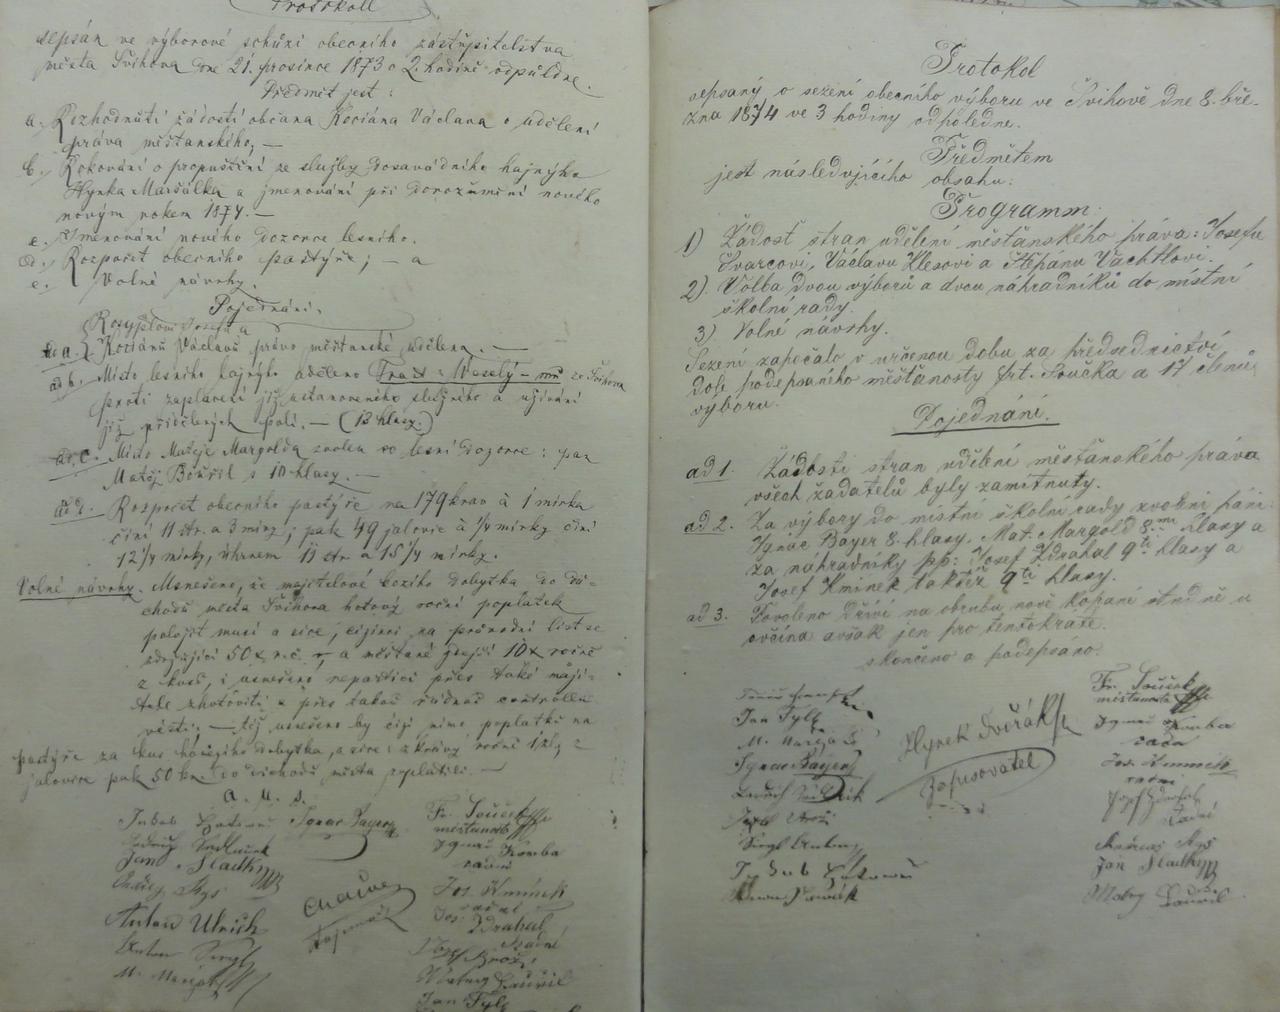 Protokoll
sepsán ve výborové schůzi obecního zastupitelstva
města Švihova dne 21. prosince 1873 o 2. hodině odpůldne.
Předmět jest:
a. Rozhodnutí žádosti občana Kociána Václava o udělení
práva měšťanského, —
b. Rokování o propuštění ze služby dosavádního hajného
Hynka Maršálka a jmenování při dorozumění nového
novým rokem 1874. —
c. Jmenování nového dozorce lesního.
d. Rozpočet obecního pastýře; — a
e. Volné návrhy.
Pojednání.
Josefu a
ad a. Kociánu Václavu právo měšťanské uděleno. —
ad b. Místo lesního hajného uděleno Veselý ze Švihova
proti zaplacení již ustanoveného služného a užívání
již přidělených polí. — (13 hlasy.)
ad c. Místo Matěje Margolda zvolen co lesní dozorce: pan
Matěj Bouřil s 10 hlasy. —
ad d. Rozpočet obecního pastýře na 179 krav à 1 mírka
činí 11 str. a 3 mírky; pak 49 jalovic à 1/4 mírky činí
12 1/4 mírky, úhrnem 11 str. a 15 1/4 mírky.
Volné návrhy. Usnešeno, že majitelové kozího dobytka do dů-
chodu města Švihova hotový roční poplatek
položit musí a sice, cizinci na průvodní list se
zdržující 50 x r.č. a měšťané zdejší 10 x ročně
z kusu, i usnešeno repartici přes také maji-
tele zhotoviti a přes takou řádnou controllu
vésti; — též usnešeno by cizí mimo poplatku na
pastýře za kus hovězího dobytka, a sice: z krávy roční 1 zl. z
jalovice pak 50 kr. do důchodu města zaplatili. —
a. u. s.
Jakub Ignac Bayer Fr. Souček
měšťanosta
Ignac Komba
radní
Jan Sladký
Jos. Kmínek
radní
Anton Ulrich Jos. Zdrahal
radní
Anton
M. Bouřil
Jan Tyle
Protokol
sepsaný o sezení obecního výboru ve Švihově dne 8. bře-
zna 1874 ve 3 hodiny odpoledne.
Předmětem
jest následujícího obsahu:
Programm:
1) Žádost stran udělení měšťanského práva: Josefu
Švarcovi, Václavu Klesovi a Štěpánu Vachtlovi.
2) Volba dvou výborů a dvou náhradníků do místní
školní rady.
3) Volné návrhy.
Sezení započalo v určenou dobu za předsednictví
dole podepsaného měšťanosty Frt. Součka a 17 členů
výboru.
Pojednání.
ad 1. Žádosti stran udělení měšťanského práva
všech žadatelů byly zamítnuty.
ad 2. Za výbory do místní školní rady zvoleni páni:
Ignac Bayer 8. hlasy, Mat. Margold 8.mi hlasy a
za náhradníky pp: Josef Zdrahal 9ti hlasy a
Josef Kmínek taktéž 9ti hlasy.
ad 3. Povoleno dříví na obrubu nově kopané studně u
ovčína avšak jen pro tentokráte.
skončeno a podepsáno.
Fr. Souček
měšťanosta
Jan Tyle
Ignac Komba
radní
M.
Hynek Dvořák
zapisovatel
Ignac Bayer
Jos. Kmínek
radní
Josef Zdrahal
radní
Josef Brož
Jan Sladký
Jakub
Bouřil